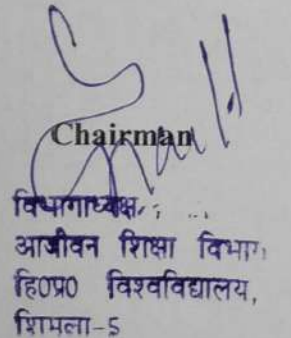 Chairman
विभागाध्यक्ष,
आजीवन शिक्षा विभाग,
हि0प्र0 विश्वविद्यालय,
शिमला-5